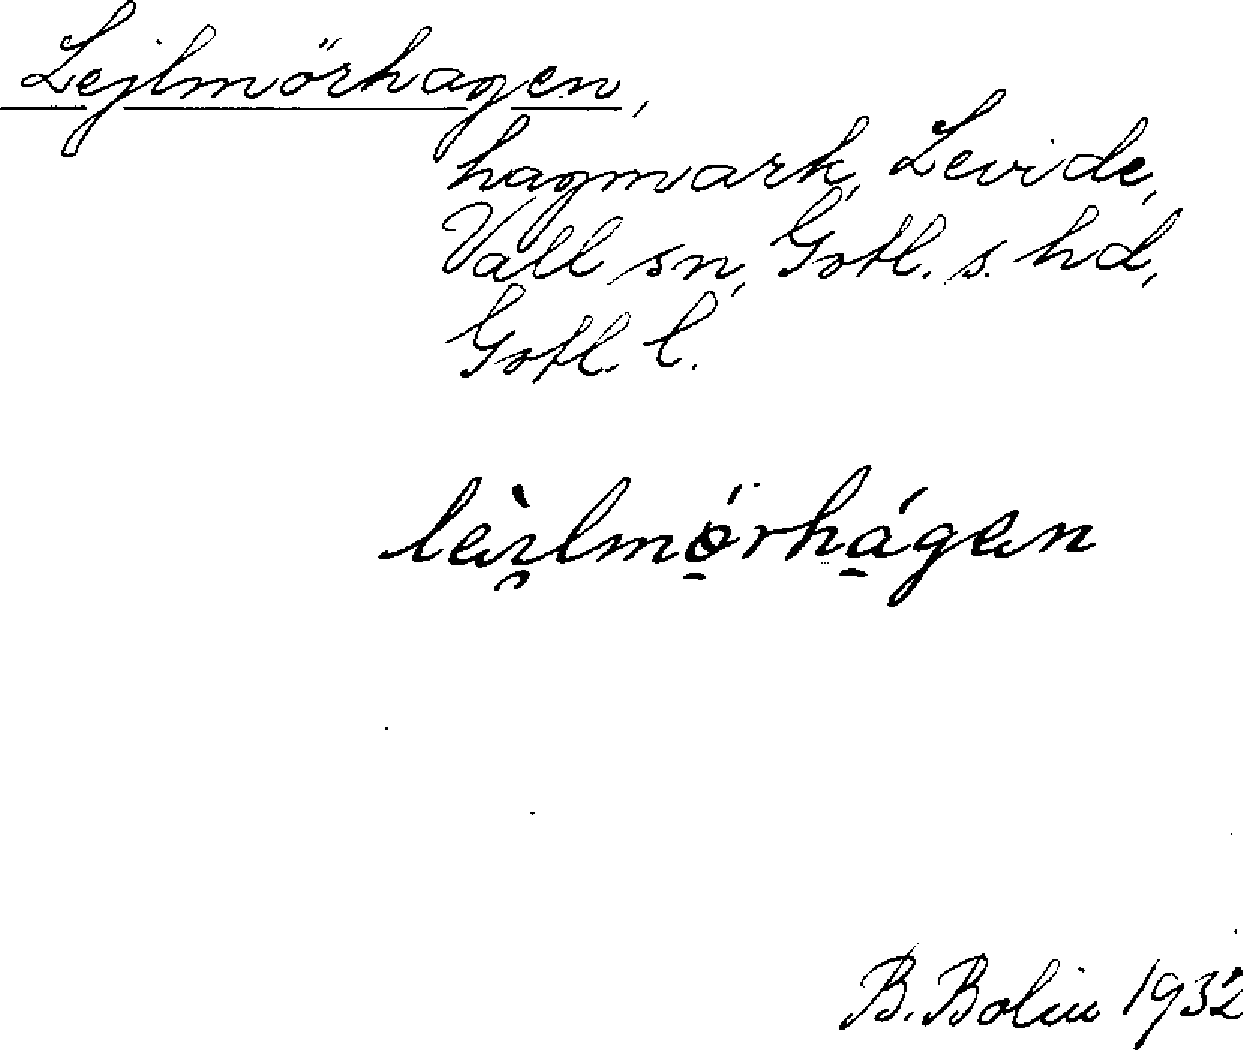 Lejlmörhagen,
hagmark, Levide,
Vall sn, Gotl. s. hd,
Gotl. l.
B. Bolin 1932